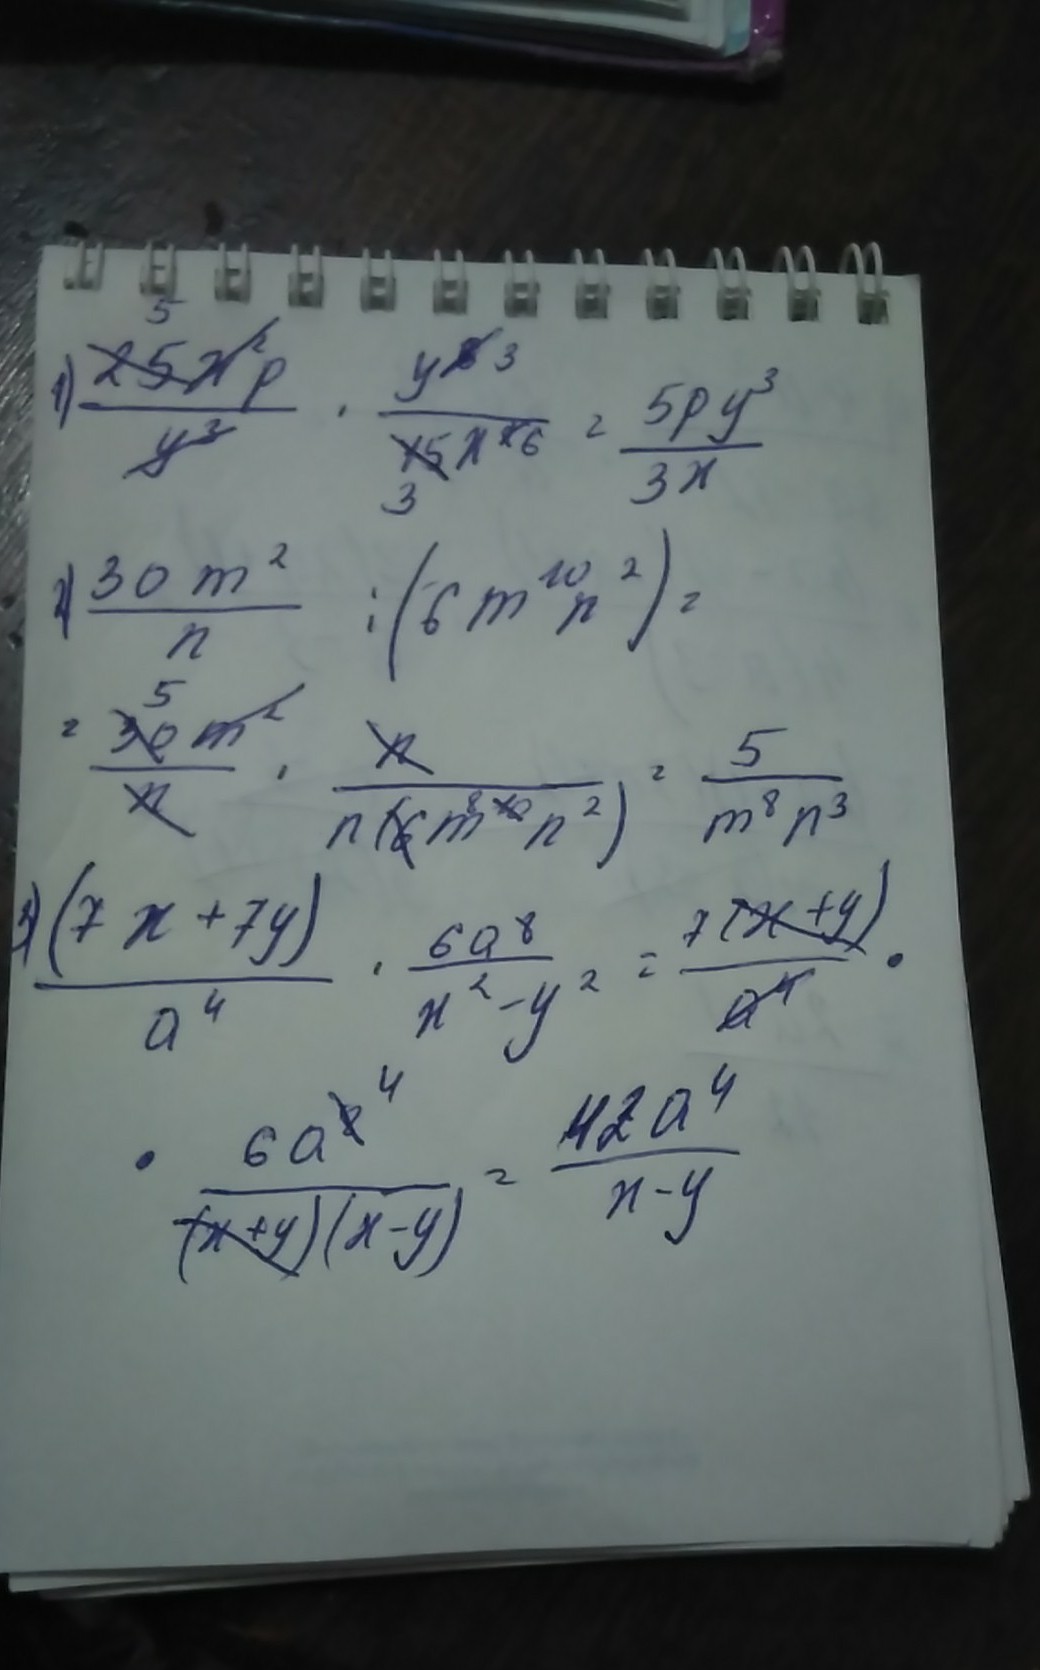 1) 25x²p/y³ · y⁸ 3/15x⁸ 6 = 5py³/3x
5
3
2) 30m²/n : (6m¹⁰n²) =
= 30m²/n · n/n(6m⁸ ¹⁰n²) = 5/m⁸n³
5
3) (7x+7y)/a⁴ · 6a⁸/x²-y² = 7(x+y)/a⁴ ·
· 6a⁸ 4/(x+y)(x-y) = 42a⁴/x-y